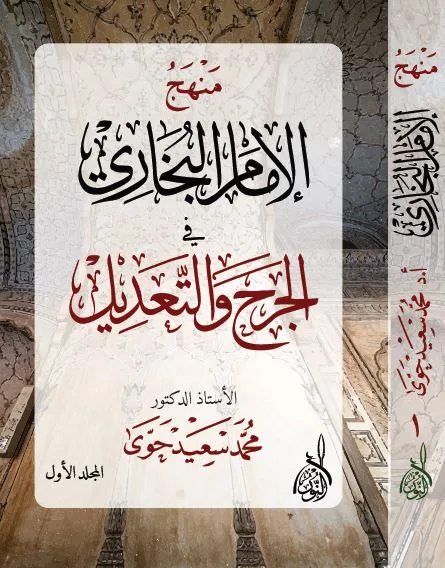 مَنْهَجُ
الإمَام البُخَارِيّ
في
الجَرْحِ وَالتَّعَدِيْل
الأستاذ الدكتور
محمَّد سَعِيْد حَوَّى
المجلد الأول
مَنْهَجُ
الإمَام البُخَارِيّ
أ.د محمَّد سَعِيْد حَوَّى